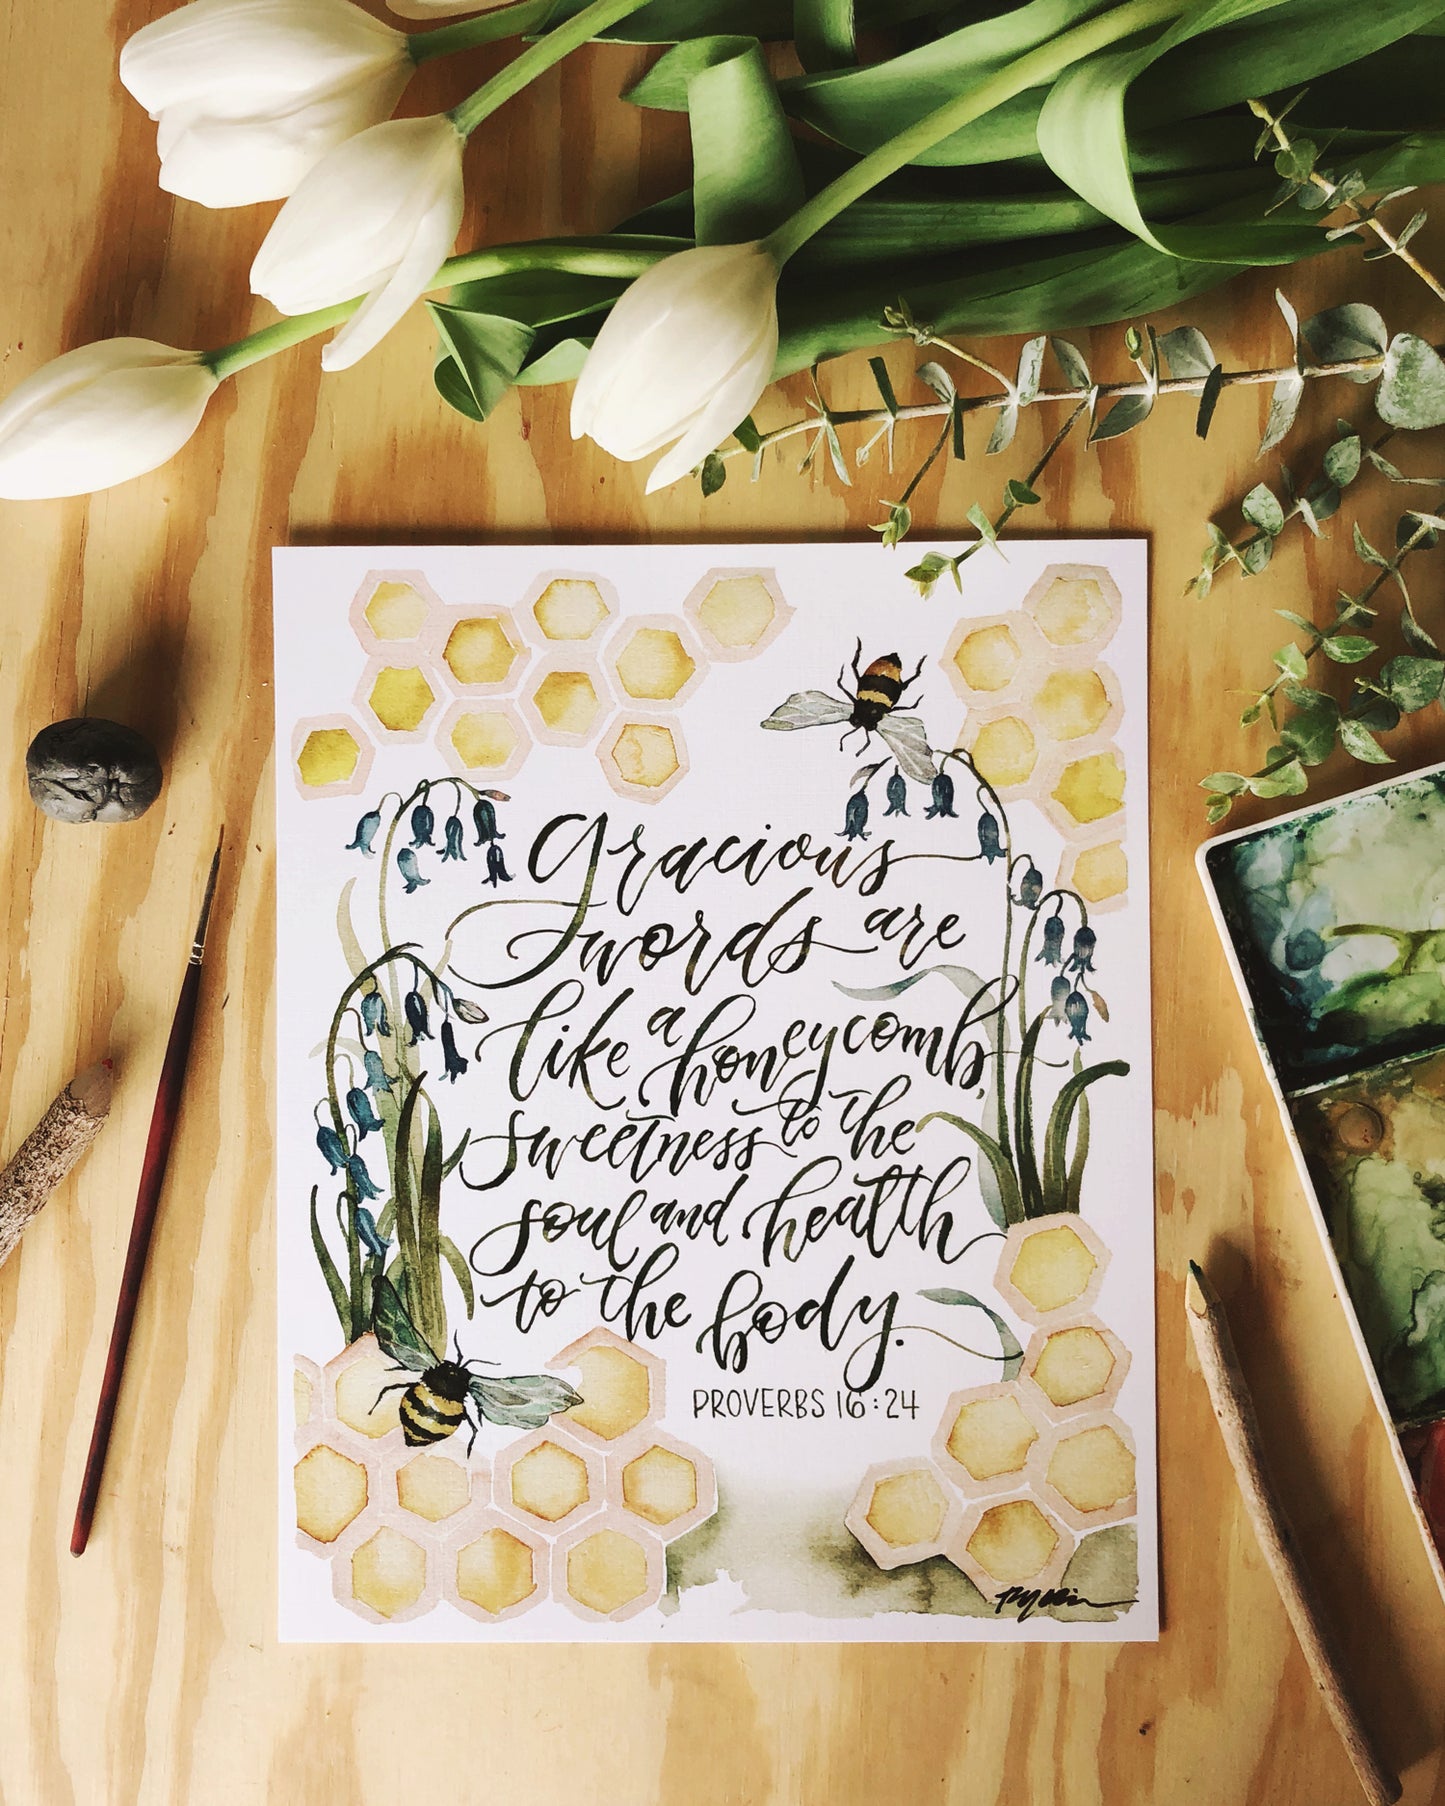 Gracious
words are
like a honeycomb,
sweetness to the
soul and health
to the body.
PROVERBS 16:24